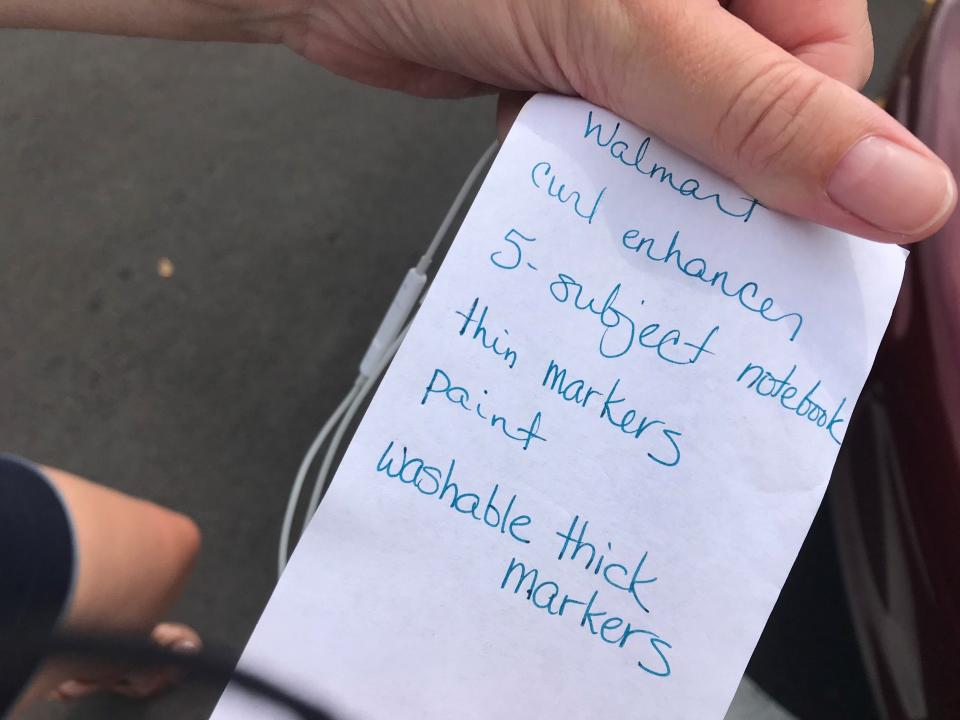 Walmart
curl enhancer
5-subject notebook
thin markers
paint
washable thick
markers